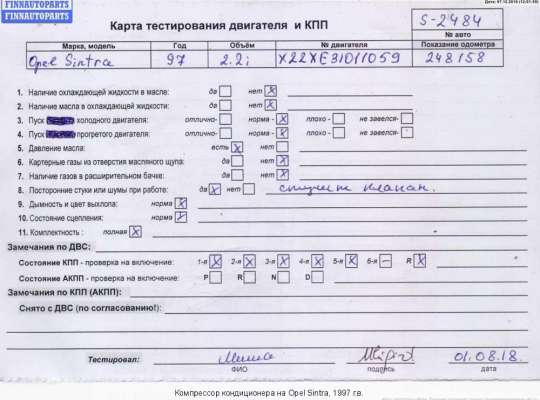 FINNAUTOPARTS
FINNAUTOPARTS
Дата: 07.12.2018 (12:01:38)
Карта тестирования двигателя и КПП
S-2484
№ авто
Марка, модель Год Объём № двигателя Показание одометра
Opel Sintra 97 2.2i X22XE31011059 248158
1. Наличие охлаждающей жидкости в масле: да нет X
2. Наличие масла в охлаждающей жидкости: да нет X
3. Пуск холодного двигателя: отлично- норма - X плохо - не завелся-
4. Пуск прогретого двигателя: отлично- норма - X плохо - не завелся-
5. Давление масла: есть X нет
6. Картерные газы из отверстия масляного щупа: да нет X
7. Наличие газов в расширительном бачке: да нет X
8. Посторонние стуки или шумы при работе: да X нет стучит клапан.
9. Дымность и цвет выхлопа: норма X
10. Состояние сцепления: норма X
11. Комплектность : полная X
Замечания по ДВС:
Состояние КПП - проверка на включение: 1-я X 2-я X 3-я X 4-я X 5-я X 6-я – R X
Состояние АКПП - проверка на включение: P R N D
Замечания по КПП (АКПП):
Снято с ДВС (по согласованию!):
Тестировал: Миша 01.08.18.
ФИО подпись дата
Компрессор кондиционера на Opel Sintra, 1997 г.в.